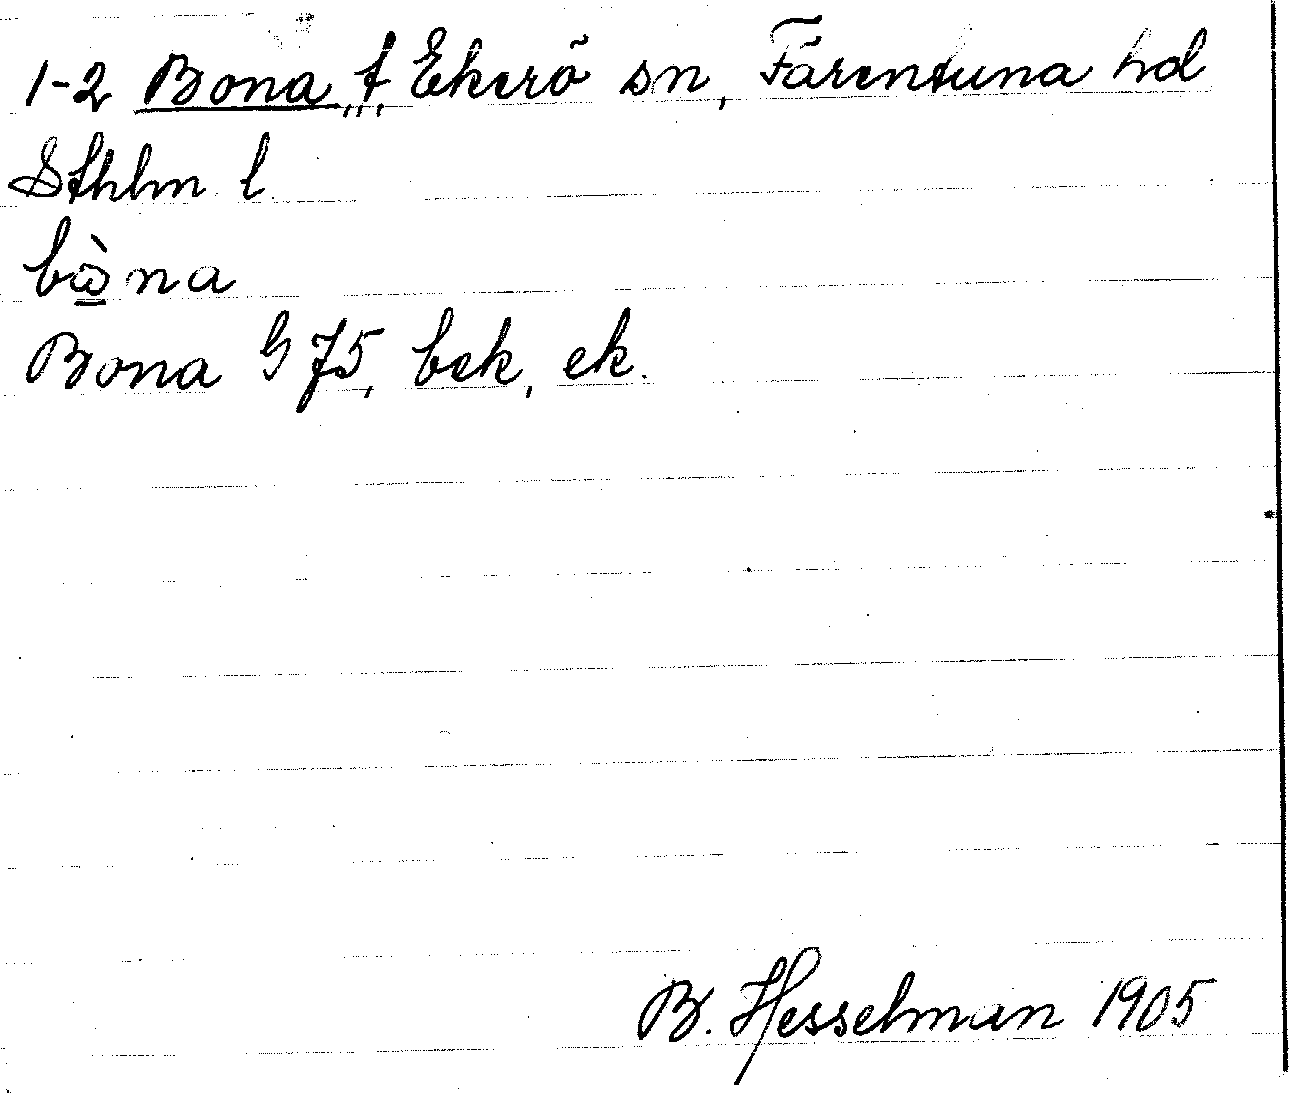 1-2 Bona, f, Ekerö sn, Färentuna hd
Sthlm l.
bὼna
Bona G 75, bek, ek.
B. Hesselman 1905